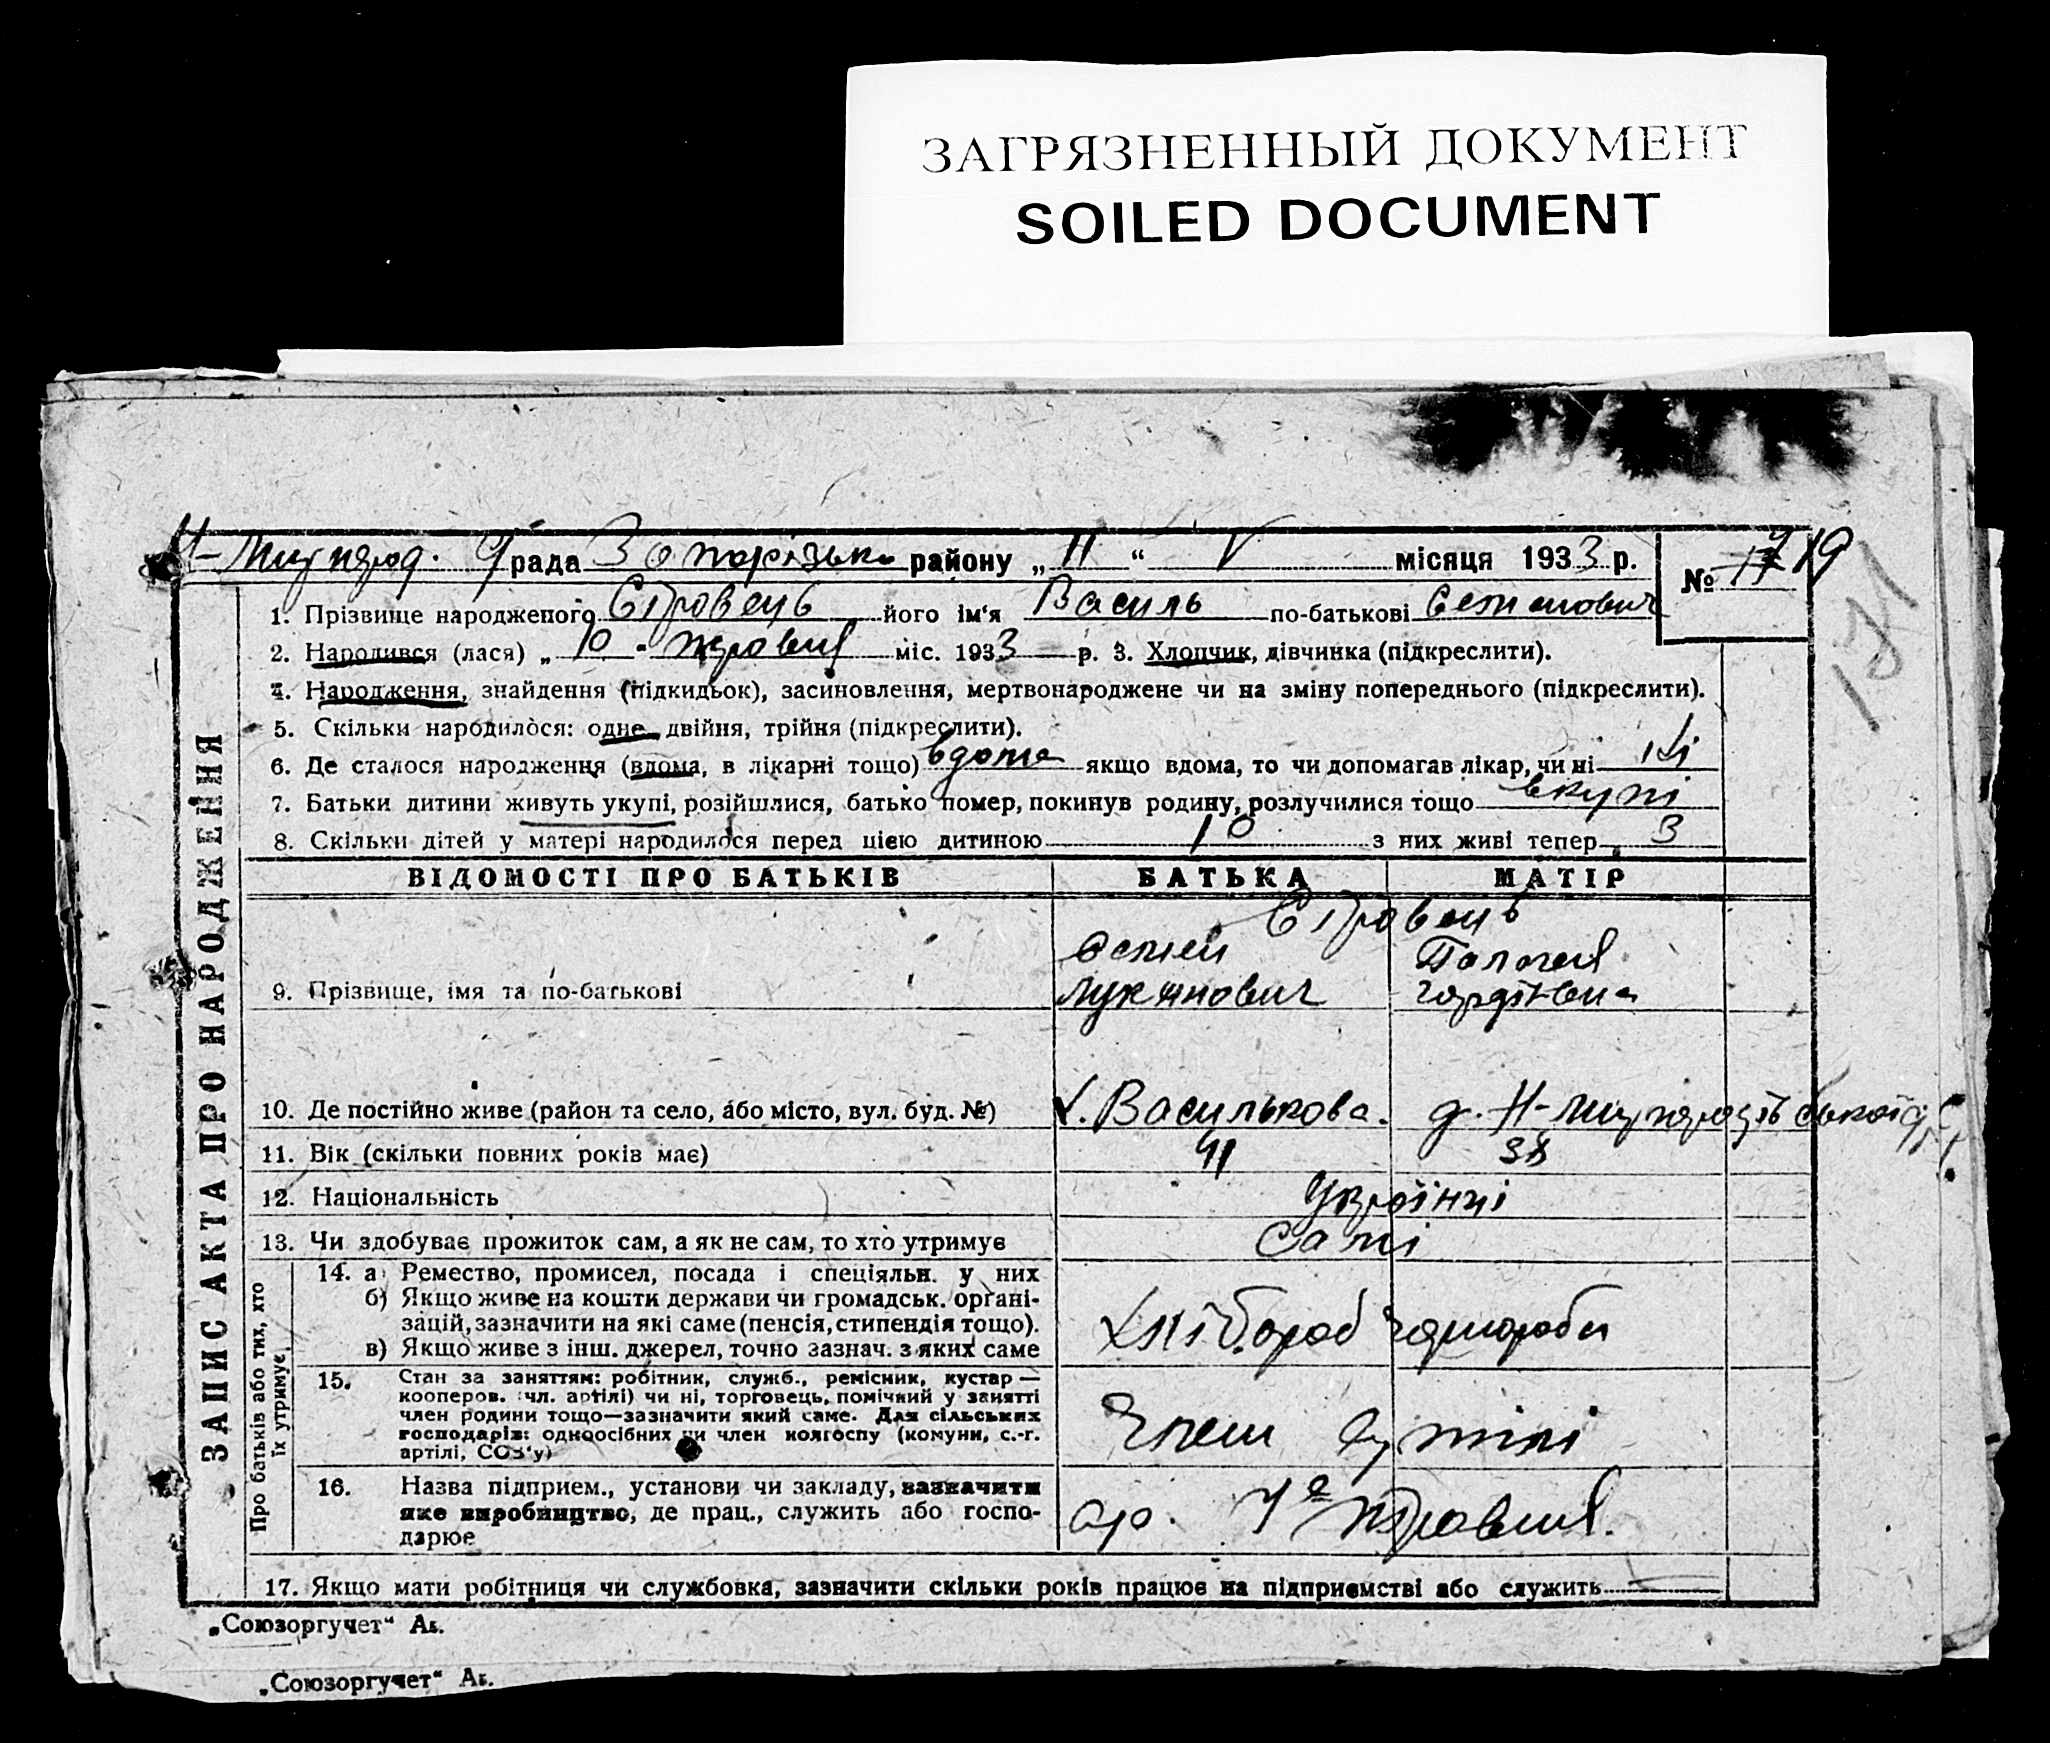 ЗАГРЯЗНЕННЫЙ ДОКУМЕНТ
SOILED DOCUMENT
рада районy „ 11 “ V місяця 1933 р. № 19
171
ЗАПИС АКТА ПРО НАРОДЖЕННЯ
1. Прізвище народженого його ім‘я Василь по-батькові
2. Народився (лася) „ 10 “ травня міс. 1933 р. 3. Хлопчик, дівчинка (підкреслити).
4. Народження, знайдення (підкидьок), засиновлення, мертвонароджене чи на зміну попереднього (підкреслити).
5. Скільки народилося: одне, двійня, трійня (підкреслити).
6. Де сталося народження (вдома, в лікарні тощо) вдома якщо вдома, то чи допомагав лікар, чи ні ні
7. Батьки дитини живуть укупі, розійшлися, батько помер, покинув родину, розлучилися тощо вкупі
8. Скільки дітей у матері народилося перед цією дитиною 10 з них живі тепер 3
ВІДОМОСТІ ПРО БАТЬКІВ БАТЬКА МАТІР
9. Прізвище, імя та по-батькові
10. Де постійно живе (район та село, або місто, вул. буд. №) х. Василькова.
11. Вік (скільки повних років має) 41 38
12. Національність Українці
13. Чи здобуває прожиток сам, а як не сам, то хто утримує Самі
Про батьків або тих, хто їх утримує
14. а) Ремество, промисел, посада і спеціяльн. у них
б) Якщо живе на кошти держави чи громадськ. органі-
зацій, зазначити на які саме (пенсія, стипендія тощо).
в) Якщо живе з інш. джерел, точно зазнач. з яких саме
хлібороб чорнороби
15. Стан за заняттям: робітник, служб., ремісник, кустар —
кооперов. (чл. артілі) чи ні, торговець, помічний у занятті
член родини тощо—зазначити який саме. Для сільських
господарів: одноосібних чи член колгоспу (комуни, с.-г.
артілі, СОЗ‘у)
Члени артілі
16. Назва підприєм., установи чи закладу, зазначити
яке виробництво, де прац., служить або госпо-
дарює
ар. 1е травня.
17. Якщо мати робітниця чи службовка, зазначити скільки років працює на підприємстві або служить
„Союзоргучет“
„Союзоргучет“